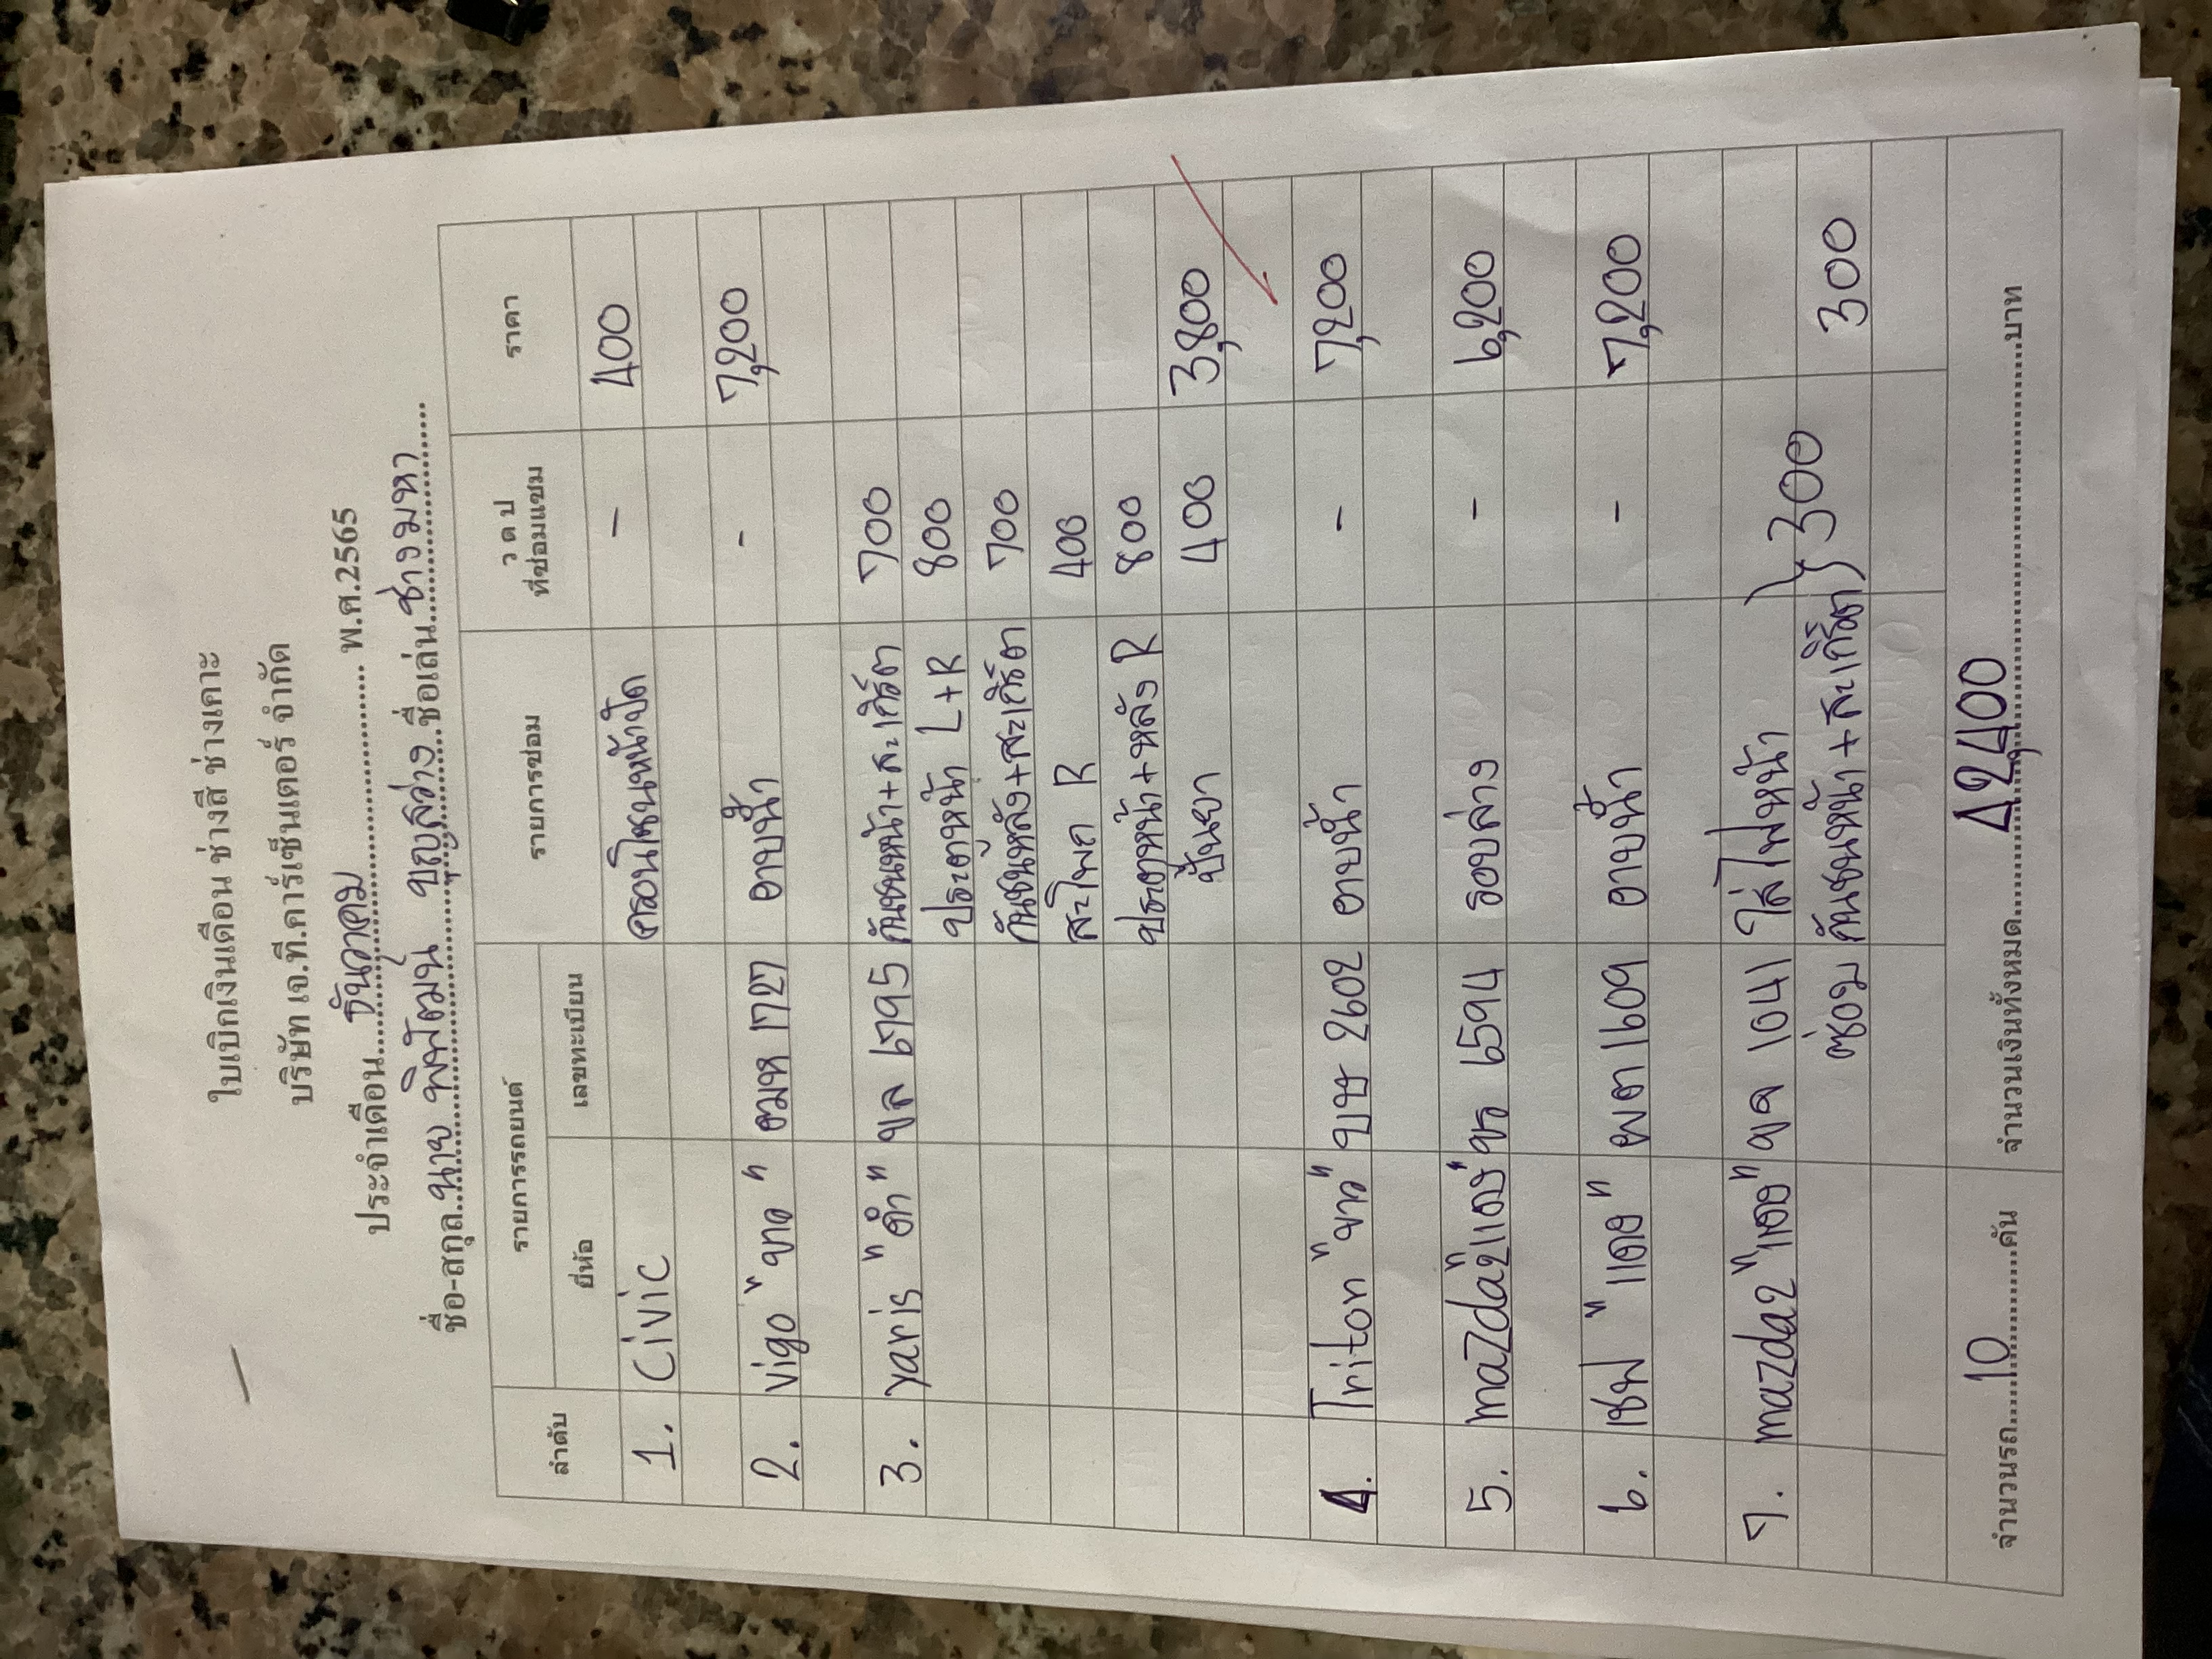 ใบเบิกเงินเดือน ช่างสี ช่างเคาะ
บริษัท เจ.ที.คาร์เซ็นเตอร์ จำกัด
ประจำเดือน....ธันวาคม.... พ.ศ.2565
ชื่อ-สกุล..นาย พิพัฒน์ บุญสว่าง..ชื่อเล่น..ช่างมหา....
ลำดับ รายการรถยนต์ รายการซ่อม ว ด ป ที่ซ่อมแซม ราคา
ยี่ห้อ เลขทะเบียน
1. Civic ครอนโซนหน้าปัด - 400
2. Vigo "ขาว" ฒมห 1727 อาบน้ำ - 7,200
3. Yaris "ดำ" ขล 6795 กันชนหน้า+สะเกิร์ต 700
ประตูหน้า L+R 800
กันชนหลัง+สะเกิร์ต 700
สะโพก R 400
ประตูหน้า+หลัง R 800
ปั้นยา 400 3,800
4. Triton "ขาว" บษ 2602 อาบน้ำ - 7,200
5. mazda2"แดง" 6594 รอบล่าง - 6,200
6. เชฟ "แดง" ผต 1609 อาบน้ำ - 7,200
7. mazda2 "แดง" ขจ 1041 ใส่ไฟหน้า
ซ่อม กันชนหน้า+สะเกิร์ต } 300 300
จำนวนรถ....10....คัน จำนวนเงินทั้งหมด....42,400....บาท